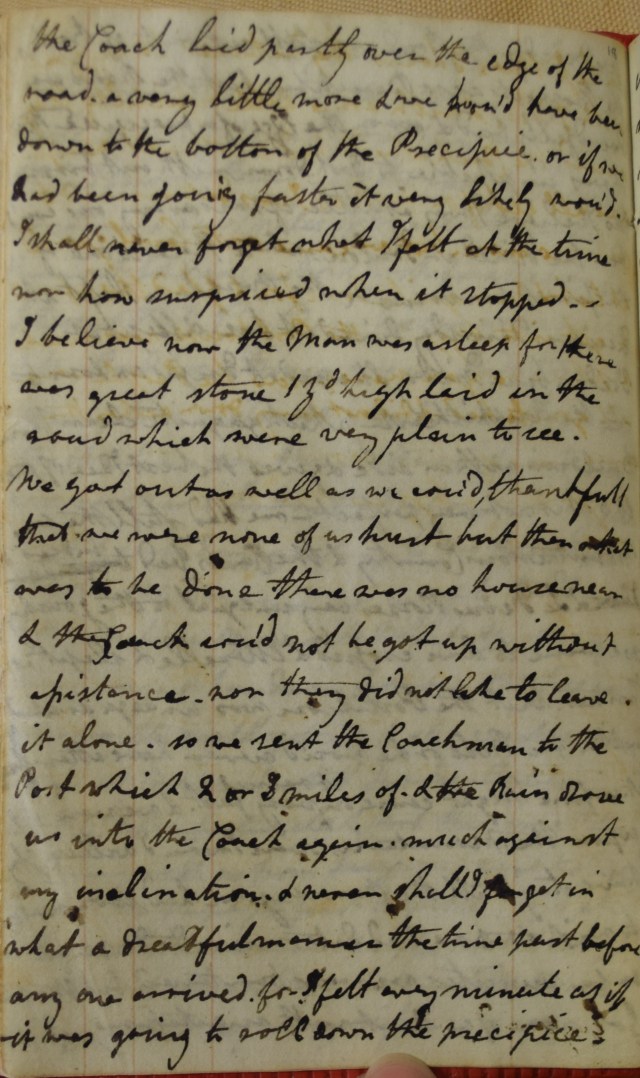 the Coach laid partly over the edge of the
road. a very little more & we wou'd have been
down to the bottom of the Precipice. or if we
had been going faster it very likely wou'd.
I shall never forget what I felt at the time
nor how surprised when it stopped. -
I believe now the Man was asleep for there
was great stone 1 yd high laid in the
road which were very plain to see.
We got out as well as we cou'd, thankfull
that we were none of us hurt but then what
was to be done there was no house near
& the Coach cou'd not be got up without
assistance. nor they did not like to leave
it alone. so we sent the Coachman to the
Post which 2 or 3 miles of. & the Rain drove
us into the Coach again. much against
my inclination. & never shall I forget in
what a dreadful manner the time past before
any one arrived. for I felt every minute as if
it was going to roll down the precipice.